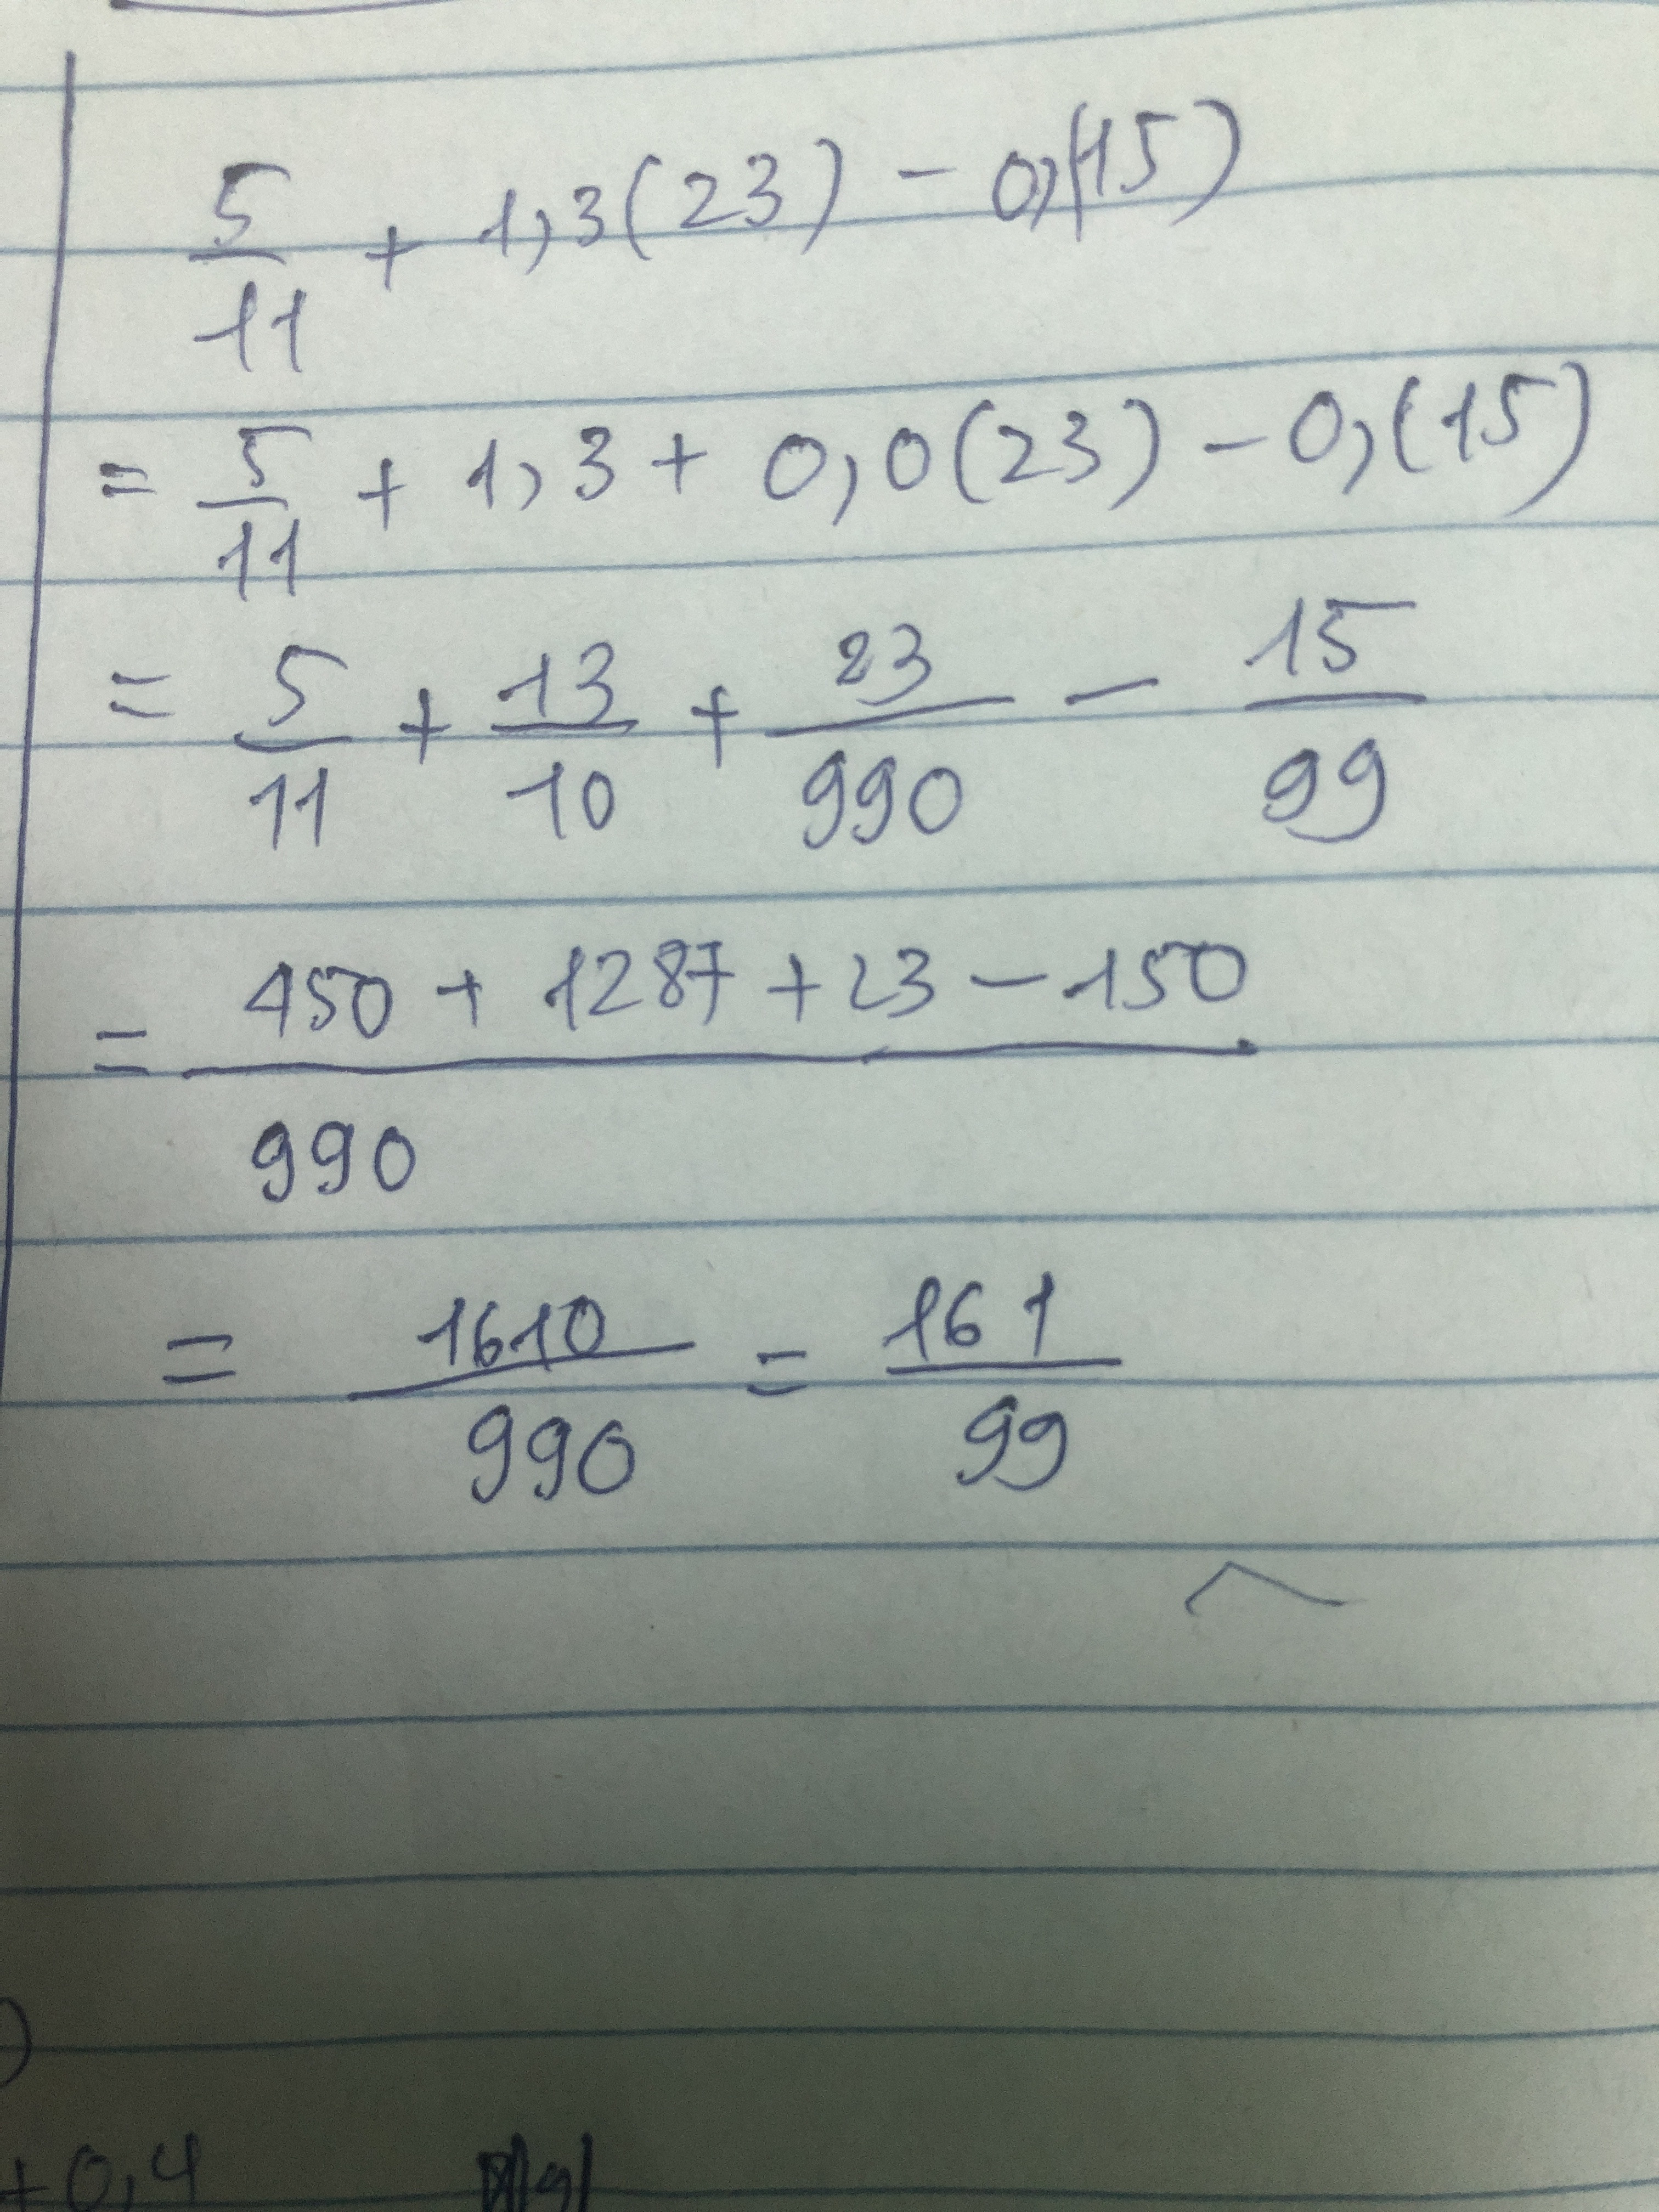 5/11 + 1,3(23) - 0,(15)
= 5/11 + 1,3 + 0,0(23) - 0,(15)
= 5/11 + 13/10 + 23/990 - 15/99
= (450 + 1287 + 23 - 150)/990
= 1610/990 = 161/99
)
+ 0,4